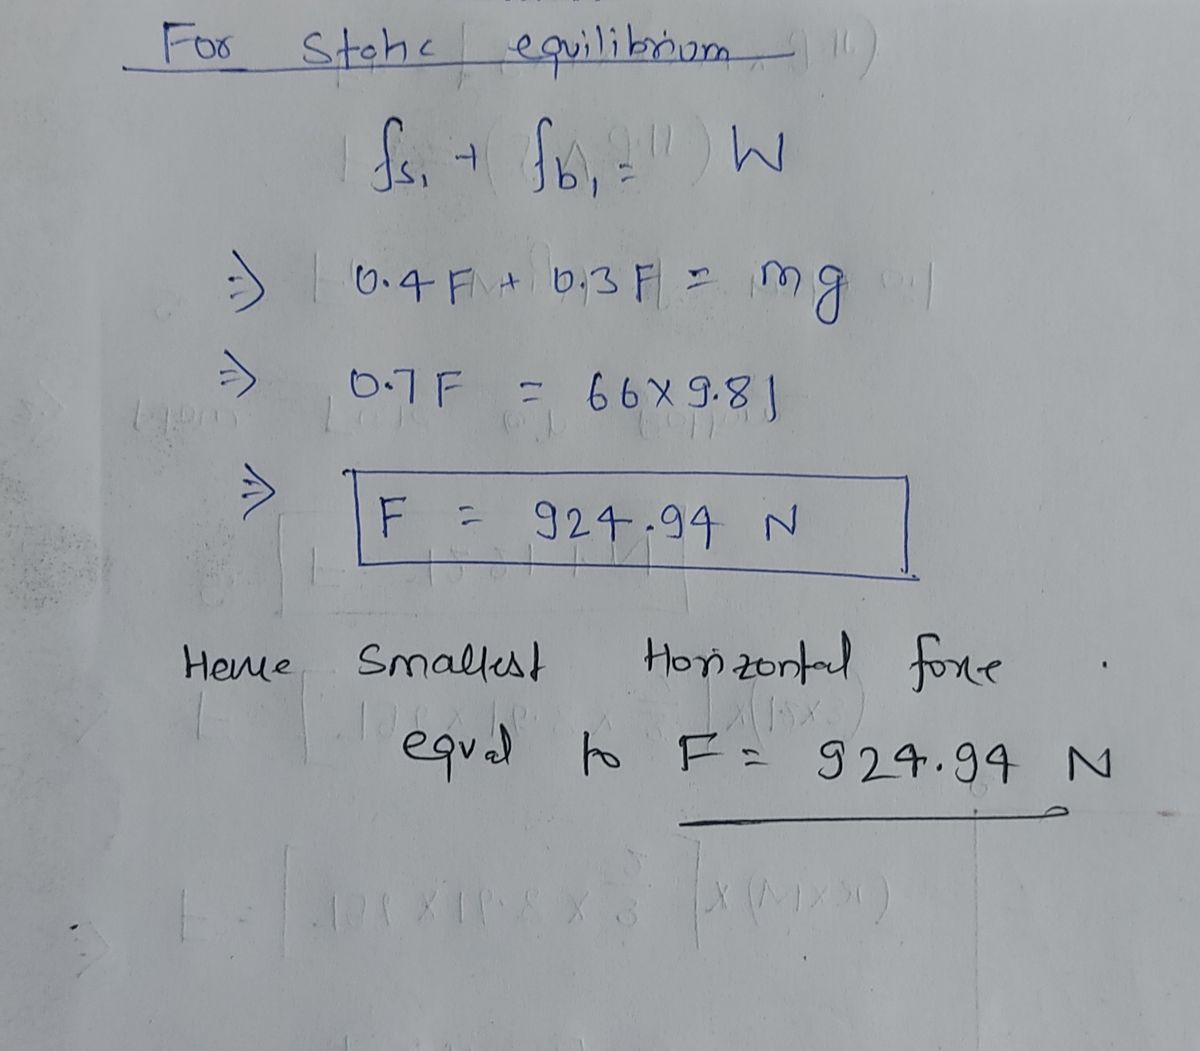 For Static equilibrium
fs₁ + fb₁ = W
⇒ 0.4 F + 0.3 F = mg
⇒ 0.7 F = 66 × 9.81
⇒ F = 924.94 N
Hence Smallest Horizontal force
equal to F = 924.94 N